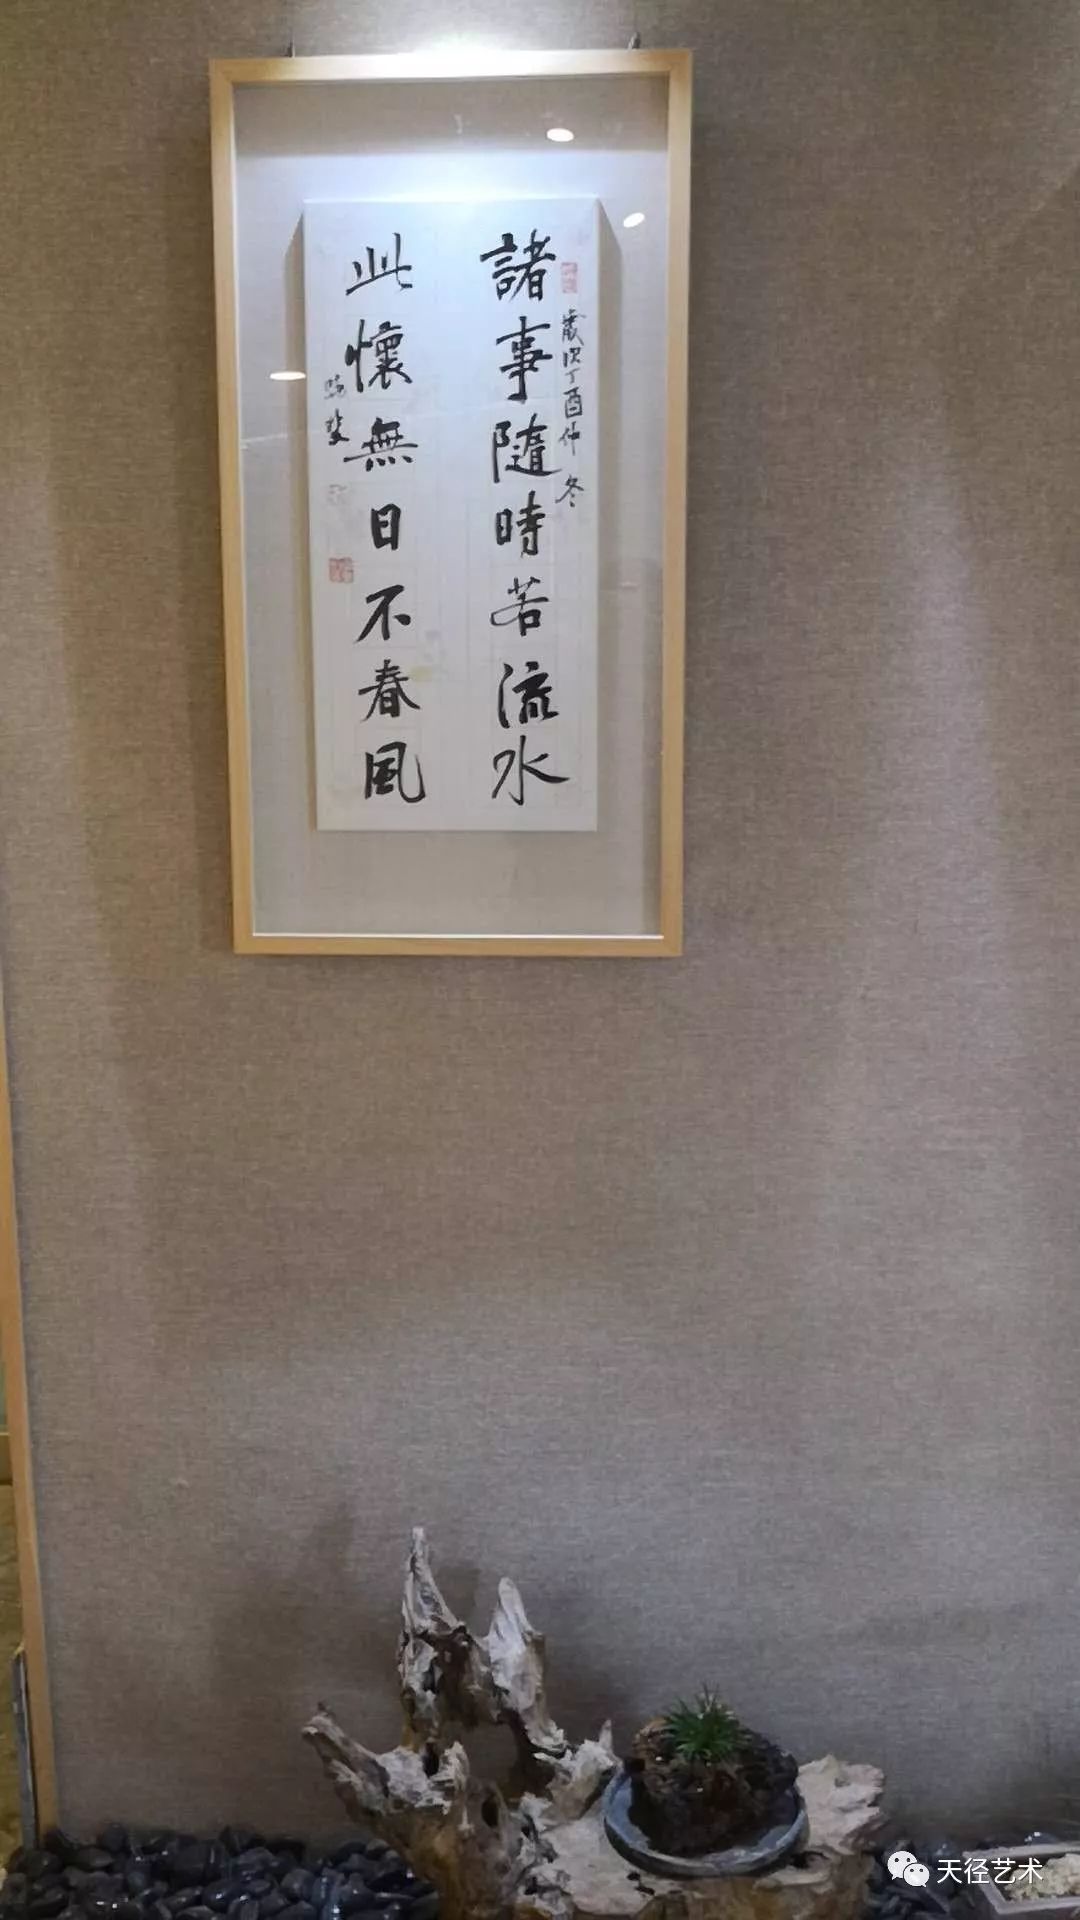 歲次丁酉仲冬
諸事隨時若流水
此懷無日不春風
天径艺术